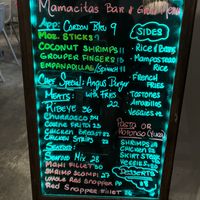 Mamacitas Bar & Grill Menu
App: Cordon Bleu 9
Moz. Sticks 9
Coconut Shrimps 11
Grouper Fingers 13
Empanadillas/Spinach 11
Chef Special: Angus Burger
with Fries
Meats:
Ribeye 36
Churrasco
Carne Frita
Chicken Breast
Chicken Strips
Seafood:
Seafood Mix 28
Mahi Fillet
Shrimp Scampi 27
Whole Red Snapper
Red Snapper Fillet
Sides
Rice & Beans
Mamposteao
Rice
French
Fries
Tostones
Amarillos
Veggies
Pasta or
Mofongo (Yuca)
Shrimps
Chicken
Skirt Steak
Veggies
Desserts